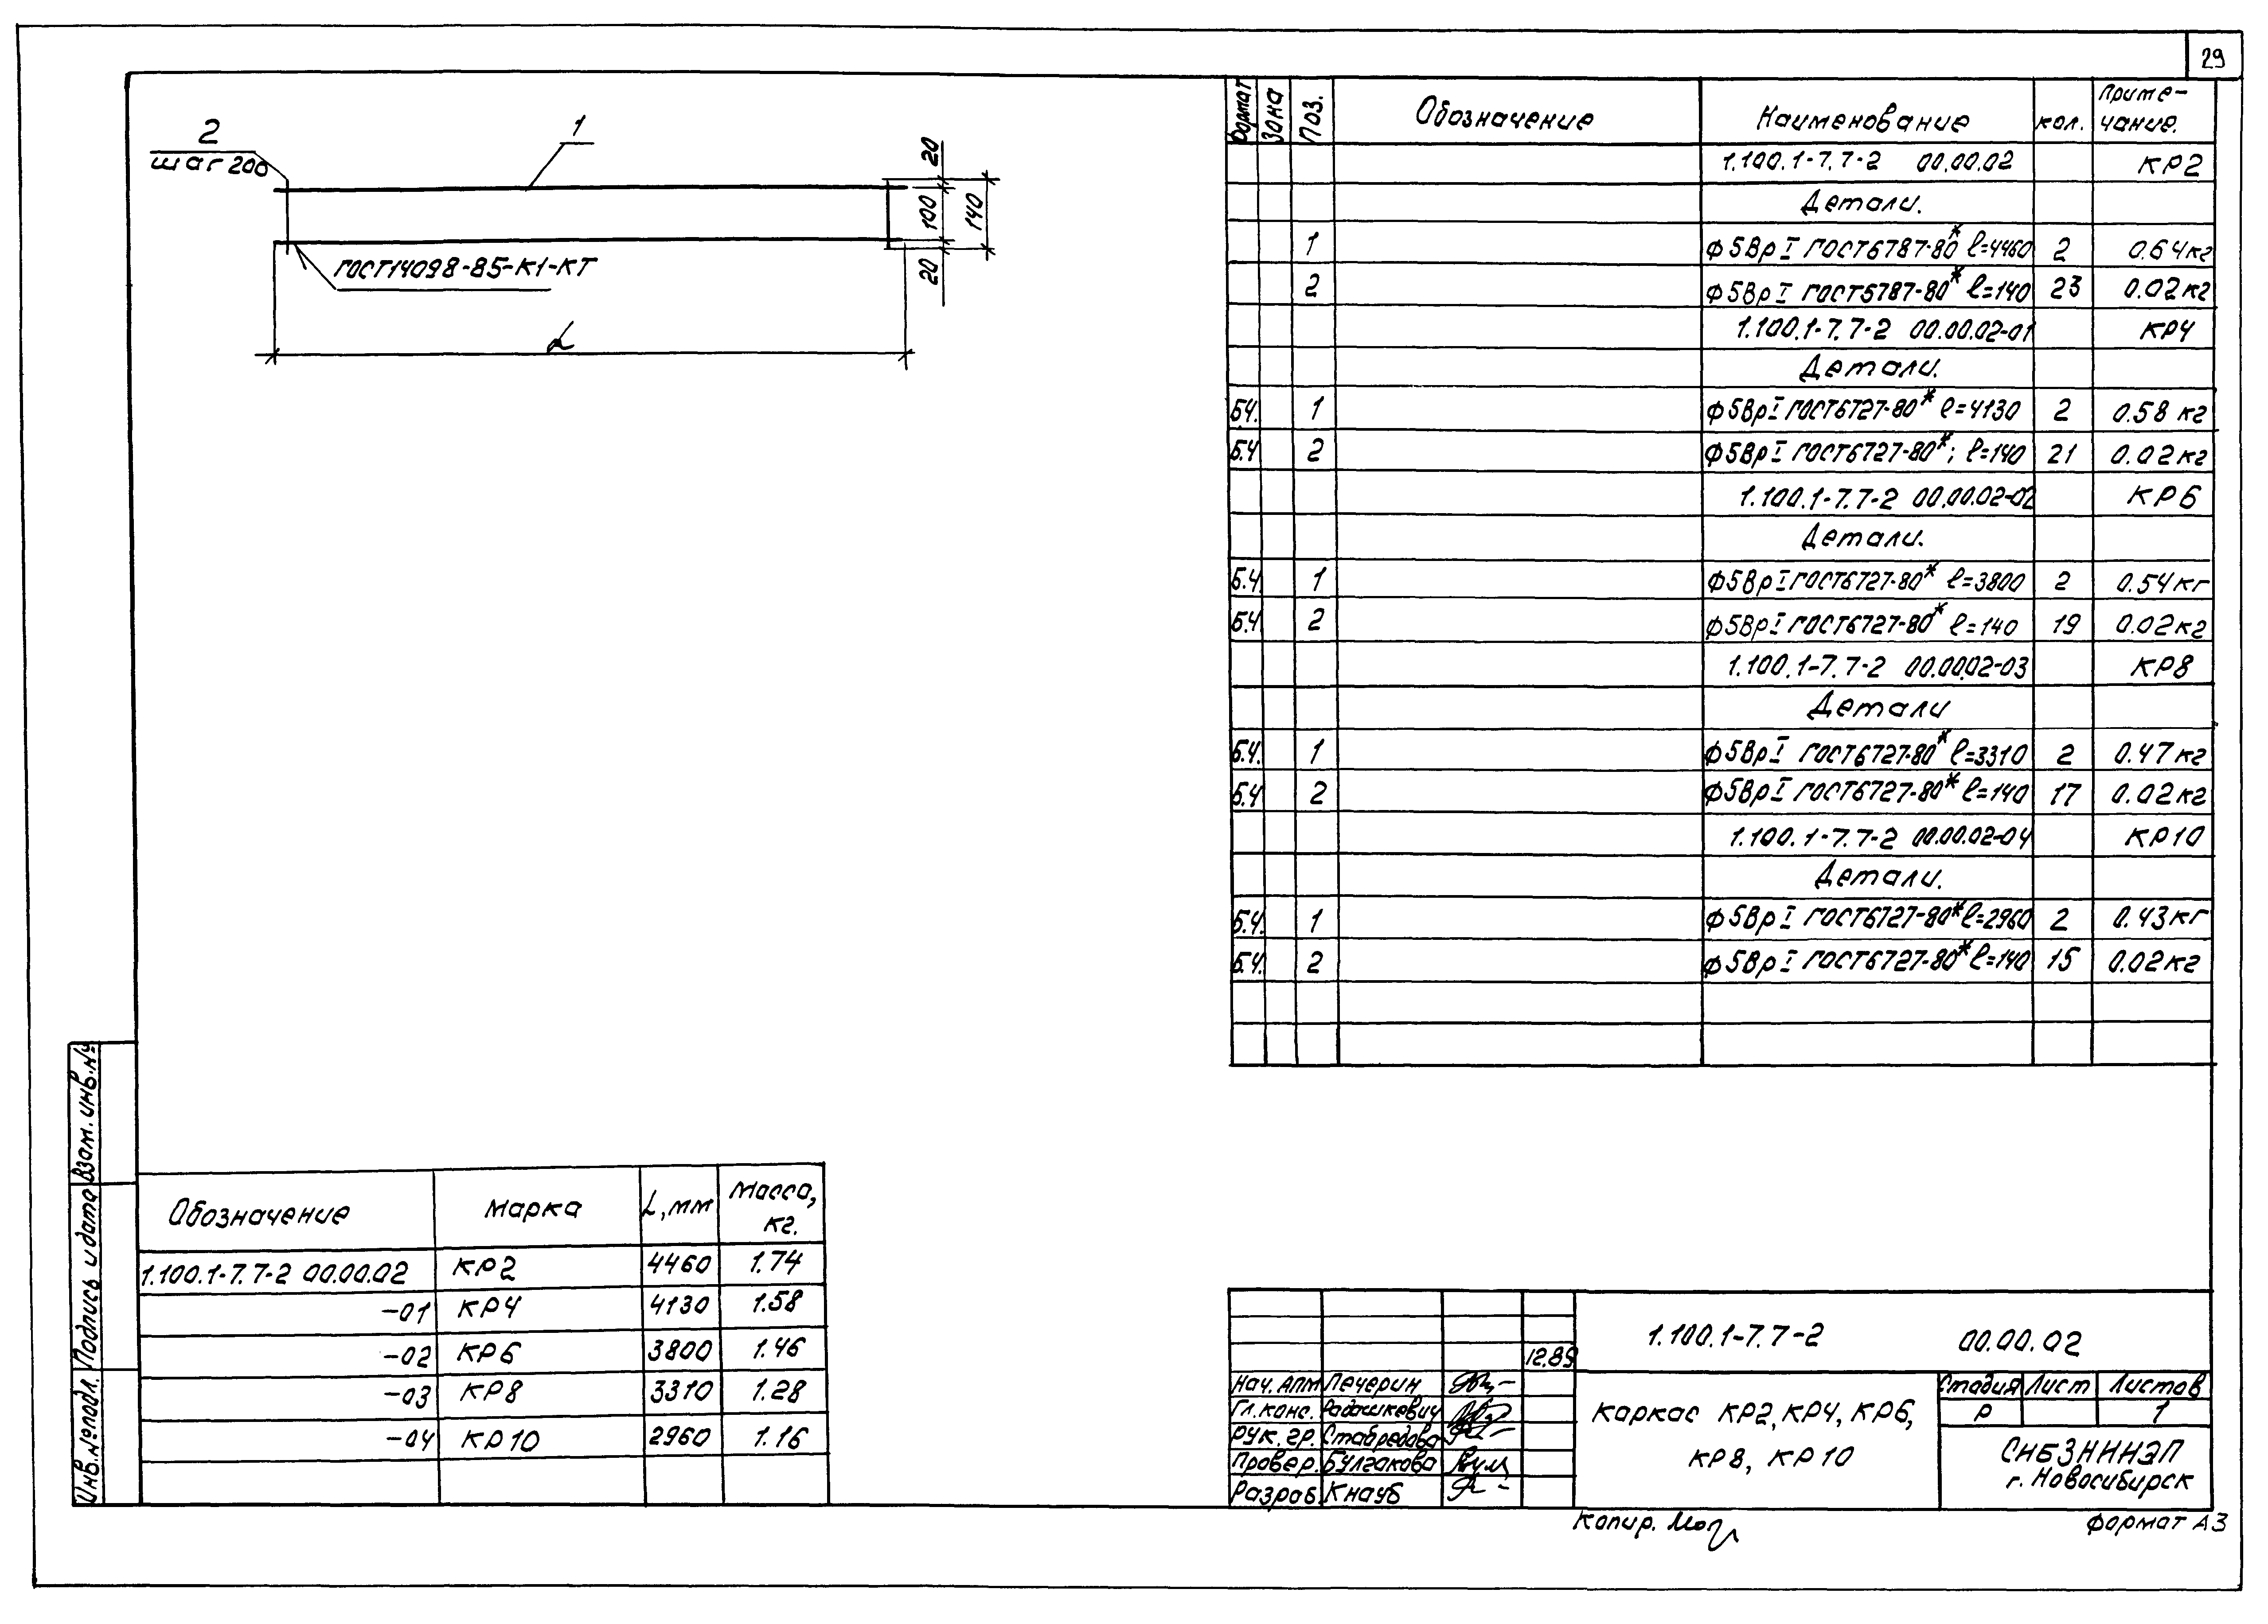 29
2
шаг 200
1
20
100
140
20
ГОСТ14098-85-К1-КТ
L
Формат Зона Поз. Обозначение Наименование кол. Приме-
чание.
1.100.1-7.7-2 00.00.02 КР2
Детали.
1 ф5ВрI ГОСТ6787-80* ℓ=4460 2 0.64кг
2 ф5ВрI ГОСТ5787-80* ℓ=140 23 0.02кг
1.100.1-7.7-2 00.00.02-01 КР4
Детали.
Б.Ч. 1 ф5ВрI ГОСТ6727-80* ℓ=4130 2 0.58 кг
Б.Ч 2 ф5ВрI ГОСТ6727-80*; ℓ=140 21 0.02кг
1.100.1-7.7-2 00.00.02-02 КР6
Детали.
Б.Ч. 1 ф5ВрI ГОСТ6727-80* ℓ=3800 2 0.54кг
Б.Ч 2 ф5ВрI ГОСТ6727-80* ℓ=140 19 0.02кг
1.100.1-7.7-2 00.00.02-03 КР8
Детали
Б.Ч. 1 ф5ВрI ГОСТ6727-80* ℓ=3310 2 0.47кг
Б.Ч 2 ф5ВрI ГОСТ6727-80* ℓ=140 17 0.02кг
1.100.1-7.7-2 00.00.02-04 КР10
Детали.
Б.Ч. 1 ф5ВрI ГОСТ6727-80* ℓ=2960 2 0.43кг
Б.Ч. 2 ф5ВрI ГОСТ6727-80* ℓ=140 15 0.02кг
Обозначение Марка L,мм Масса,
кг.
1.100.1-7.7-2 00.00.02 КР2 4460 1.74
-01 КР4 4130 1.58
-02 КР6 3800 1.46
-03 КР8 3310 1.28
-04 КР10 2960 1.16
Взам. инв.№
Подпись и дата
Инв.№подл.
12.89
1.100.1-7.7-2 00.00.02
Нач. АПМ Печерин
Гл.конс. Радашкевич
Рук. гр. Стабредова
Провер. Булгакова
Разраб. Кнауб
Каркас КР2, КР4, КР6,
КР8, КР10
Стадия Лист Листов
Р 1
СИБЗНИИЭП
г. Новосибирск
Копир.
Формат А3